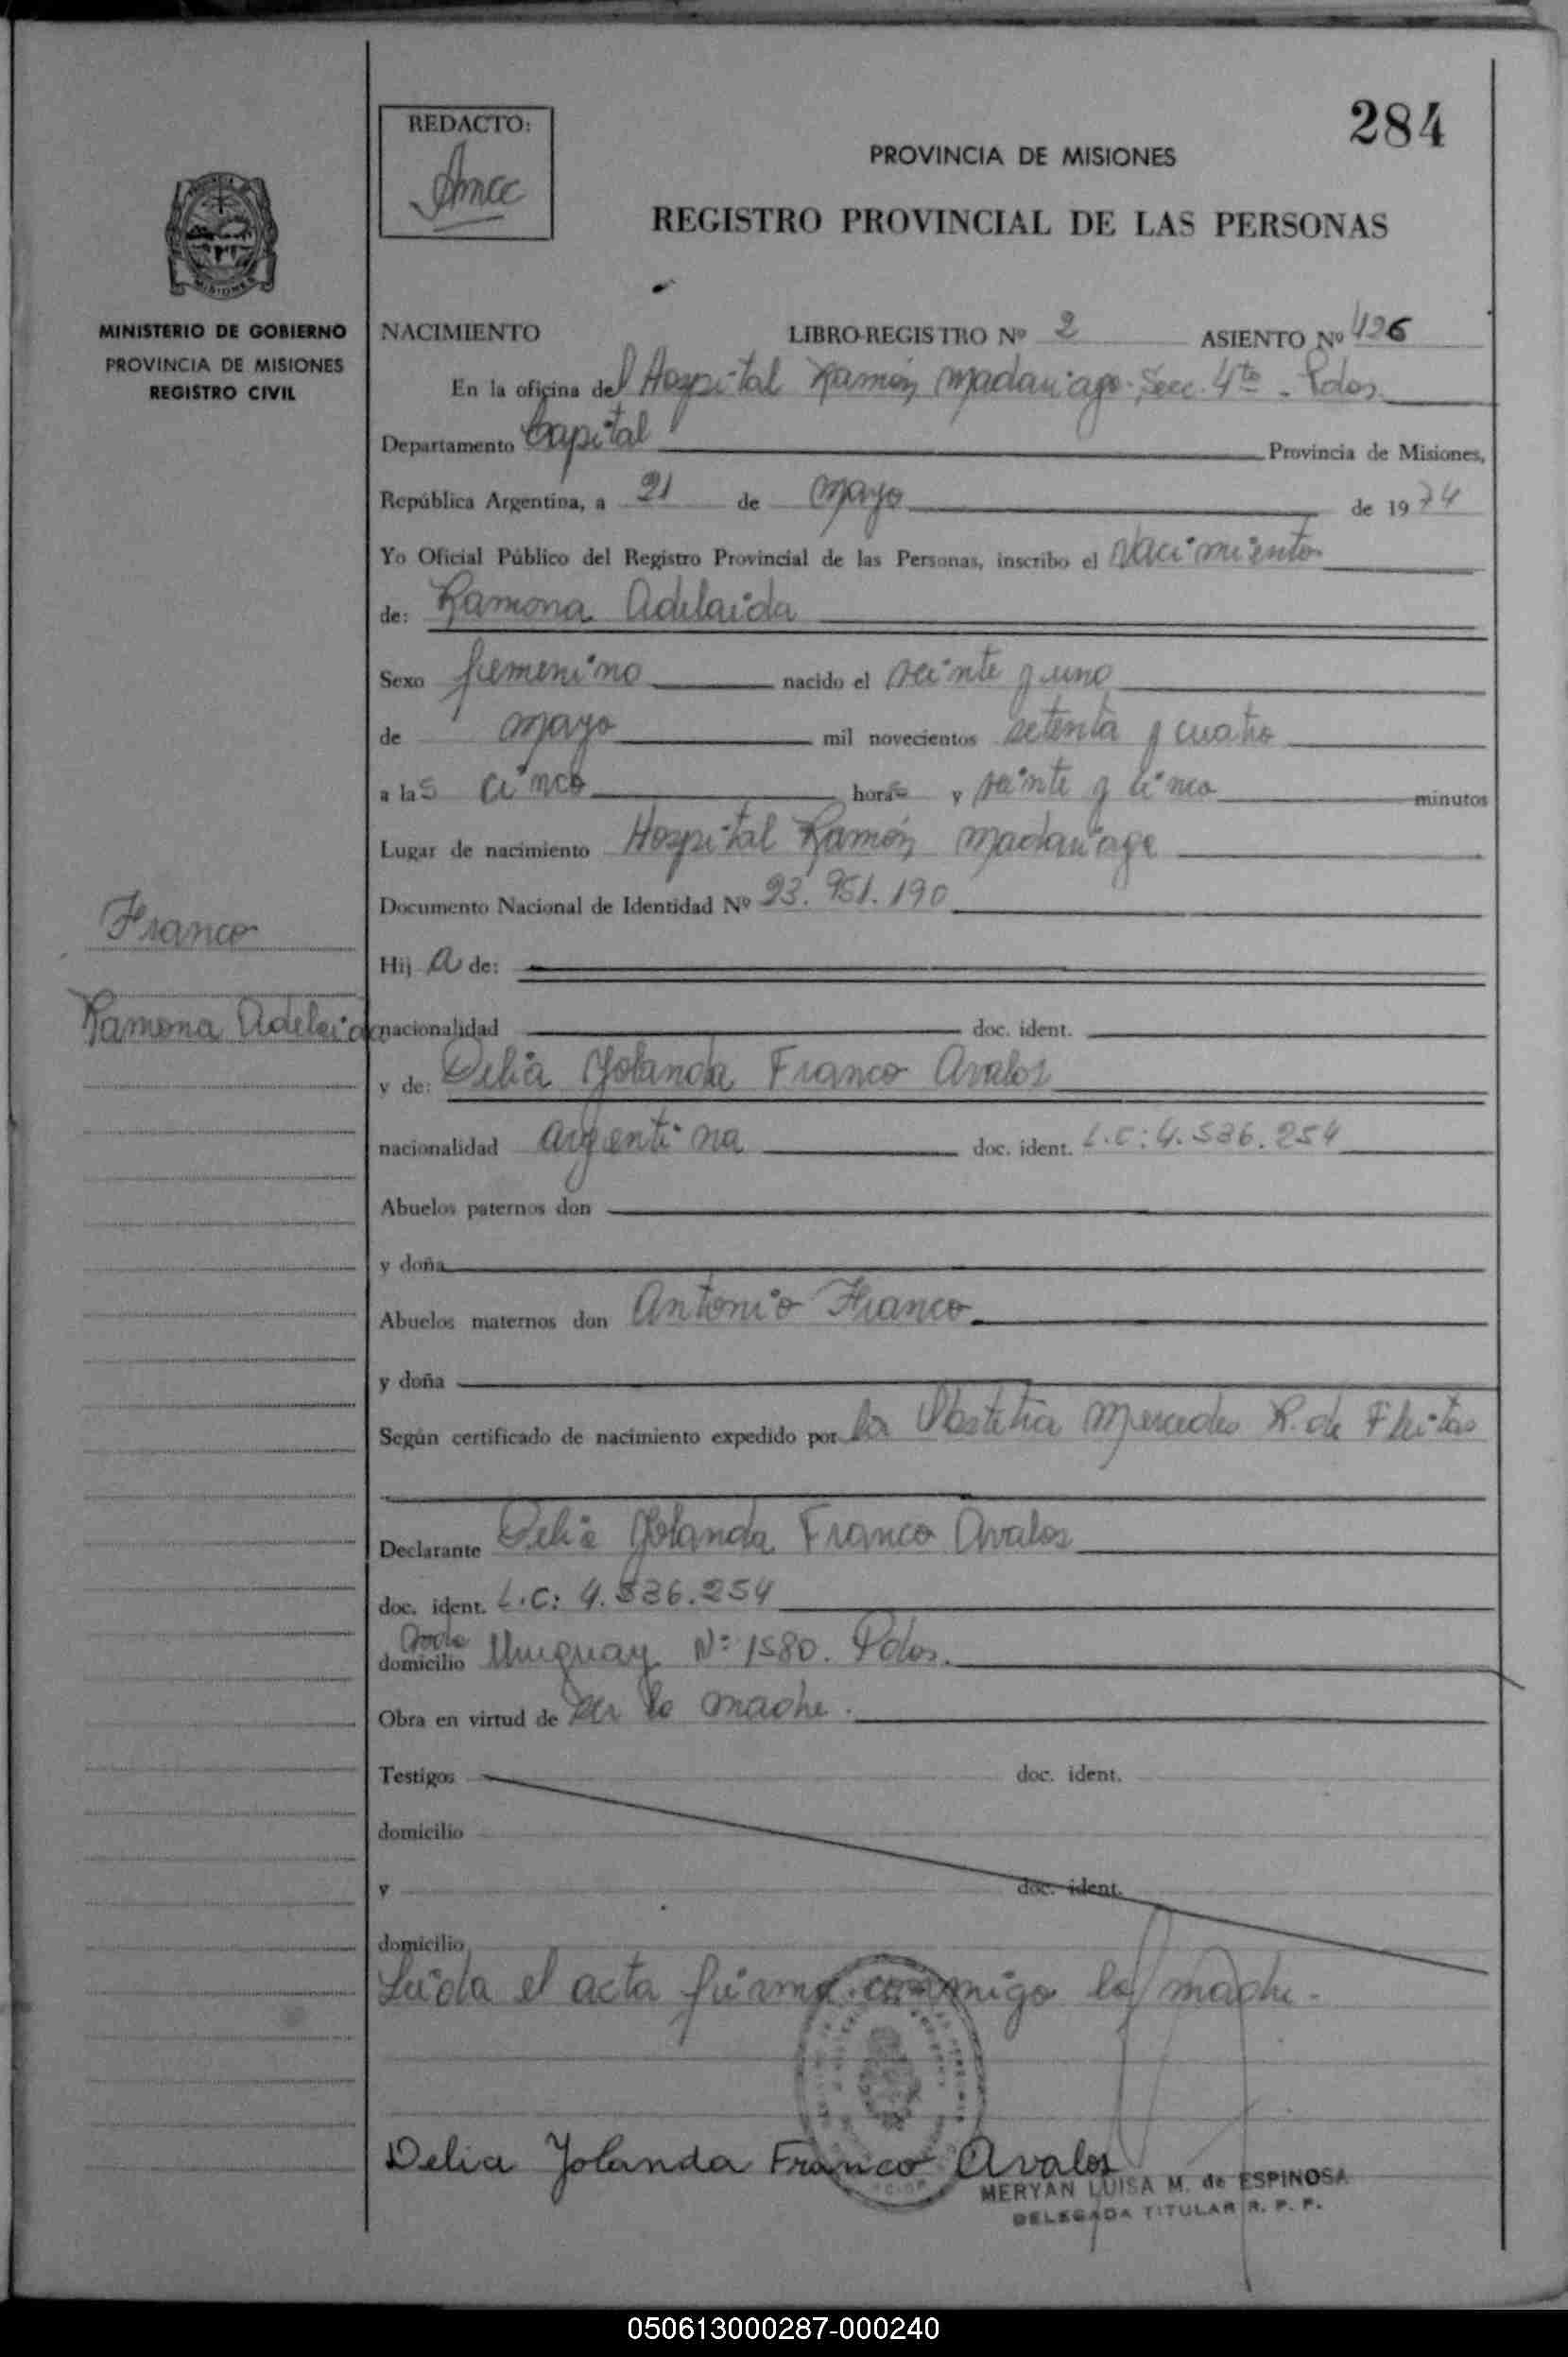 284
REDACTO:
PROVINCIA DE MISIONES
REGISTRO PROVINCIAL DE LAS PERSONAS
MISIONES
MINISTERIO DE GOBIERNO
PROVINCIA DE MISIONES
REGISTRO CIVIL
NACIMIENTO LIBRO-REGISTRO Nº 2 ASIENTO Nº 426
En la oficina del Hospital Ramón Madariaga. Secc. 4ta - Pdas.
Departamento Capital Provincia de Misiones,
República Argentina, a 21 de Mayo de 1974
Yo Oficial Público del Registro Provincial de las Personas, inscribo el Nacimiento
de: Ramona Adelaida
Sexo femenino nacido el veinte y uno
de mayo mil novecientos setenta y cuatro
a las cinco horas y veinte y cinco minutos
Lugar de nacimiento Hospital Ramón Madariaga
Documento Nacional de Identidad Nº 23.951.190
Franco
Hij a de:
Ramona Adelaida
nacionalidad doc. ident.
y de: Delia Yolanda Franco Avalos
nacionalidad argentina doc. ident. L.C: 4.536.254
Abuelos paternos don
y doña
Abuelos maternos don Antonio Franco
y doña
Según certificado de nacimiento expedido por la Obstetra Mercedes R. de Fleitas
Declarante Delia Yolanda Franco Avalos
doc. ident. L.C: 4.536.254
domicilio Avda Uruguay Nº 1580. Pdas.
Obra en virtud de ser la madre.
Testigos doc. ident.
domicilio
y doc. ident.
domicilio
Leida el acta firma conmigo la madre.
Delia Yolanda Franco Avalos
MERYAN LUISA M. de ESPINOSA
DELEGADA TITULAR R. P. P.
050613000287-000240